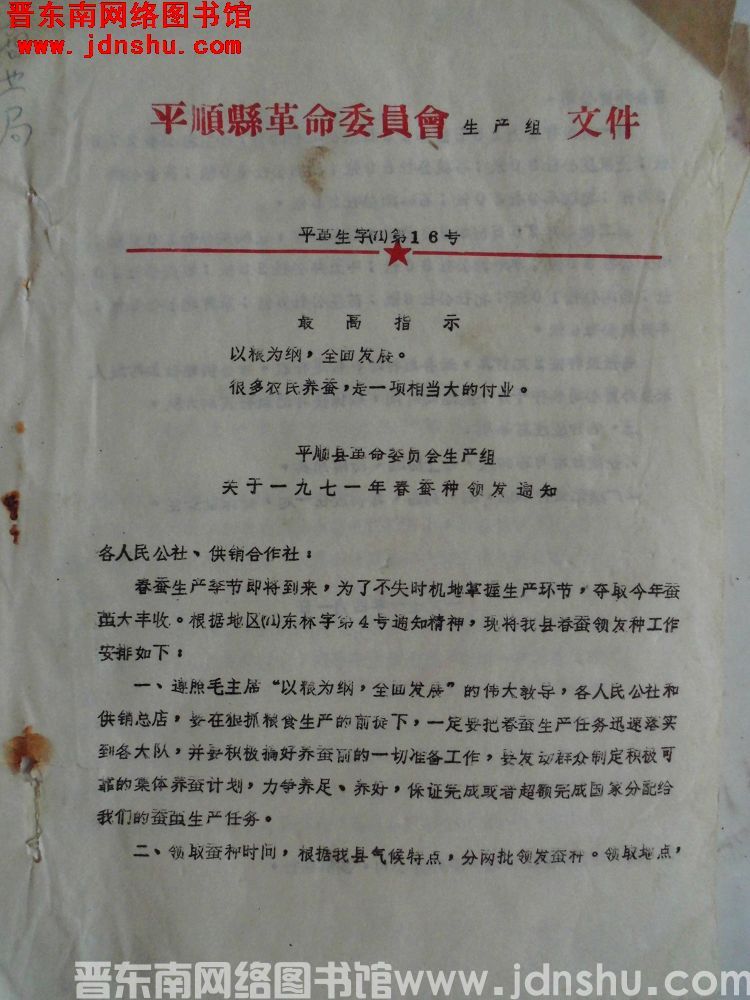 晋东南网络图书馆
www.jdnshu.com
局
平順縣革命委員會 生产组 文件
平革生字(71)第16号
最高指示
以粮为纲，全面发展。
很多农民养蚕，是一项相当大的付业。
平顺县革命委员会生产组
关于一九七一年春蚕种领发通知
各人民公社、供销合作社：
春蚕生产季节即将到来，为了不失时机地掌握生产环节，夺取今年蚕
茧大丰收。根据地区(71)东林字第4号通知精神，现将我县春蚕领发种工作
安排如下：
一、遵照毛主席“以粮为纲，全面发展”的伟大教导，各人民公社和
供销总店，要在狠抓粮食生产的前提下，一定要把春蚕生产任务迅速落实
到各大队，并要积极搞好养蚕前的一切准备工作，要发动群众制定积极可
靠的集体养蚕计划，力争养足、养好，保证完成或者超额完成国家分配给
我们的蚕茧生产任务。
二、领取蚕种时间，根据我县气候特点，分两批领发蚕种。领取地点，
晋东南网络图书馆www.jdnshu.com